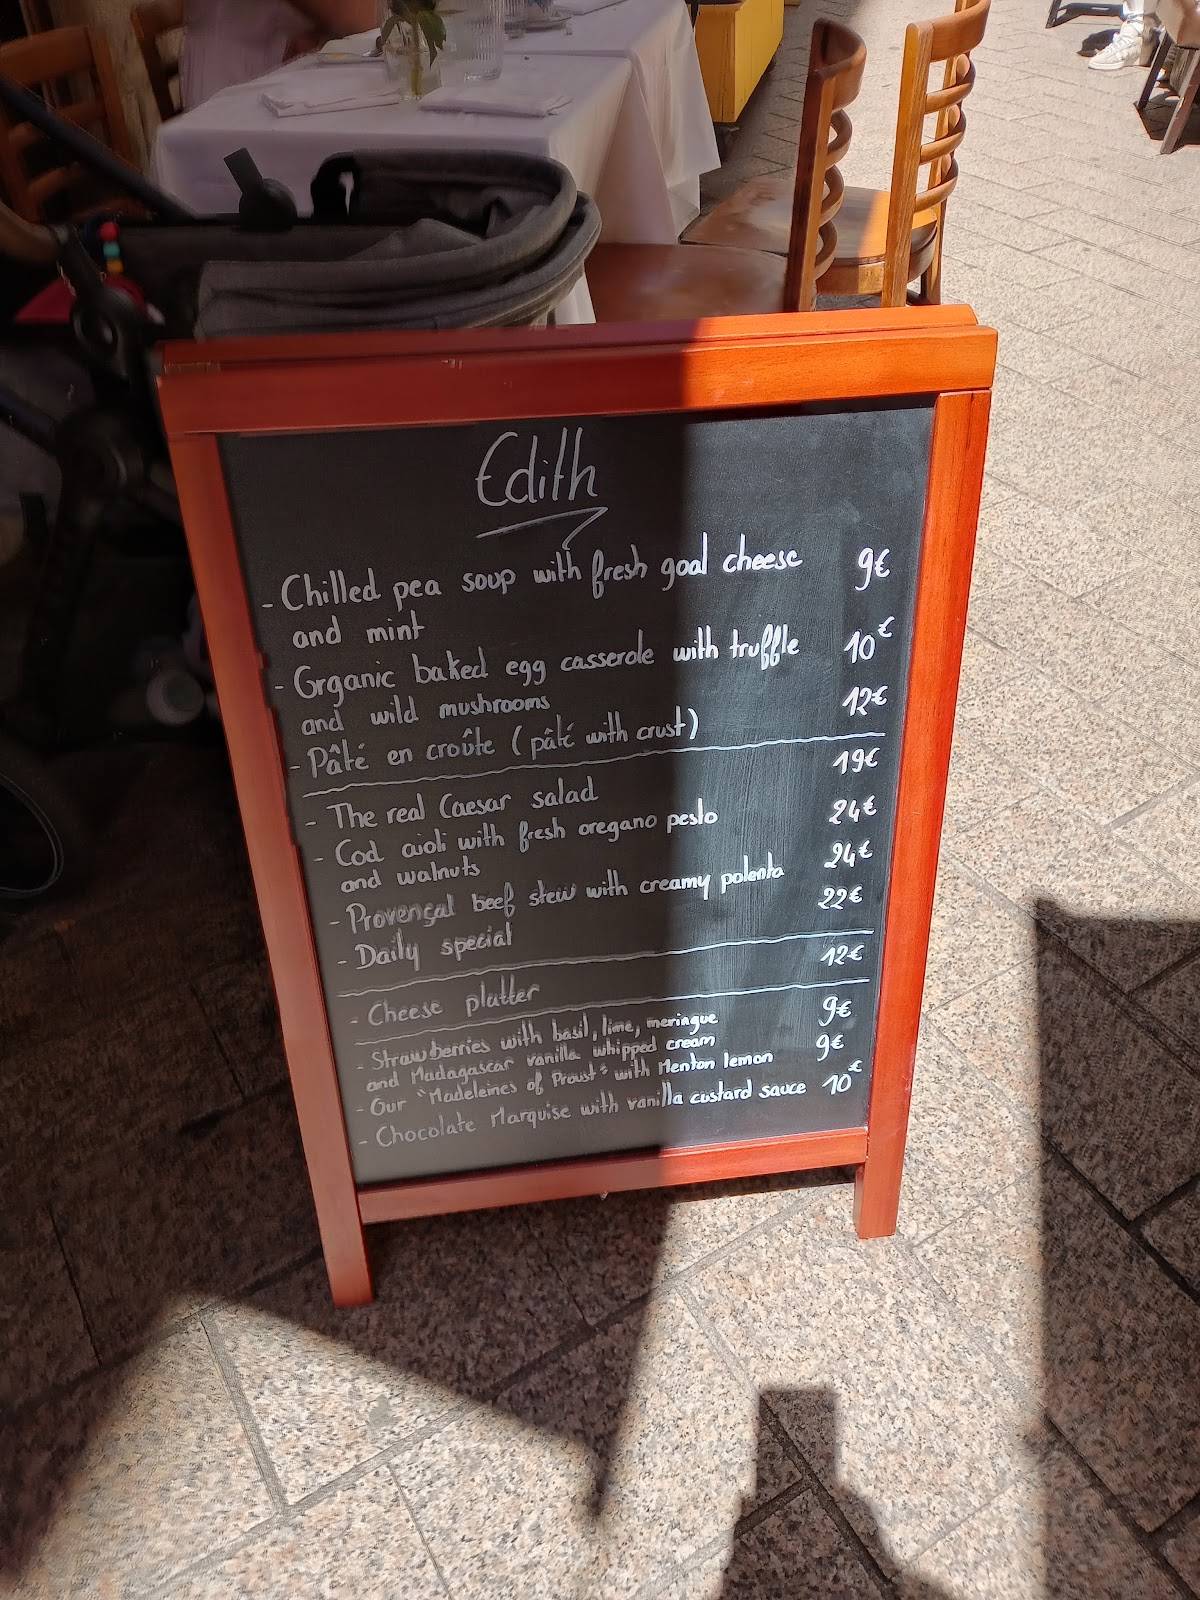 Edith
- Chilled pea soup with fresh goat cheese 9€
and mint
- Organic baked egg casserole with truffle 10€
and wild mushrooms
- Pâté en croûte (pâté with crust) 12€
- The real Caesar salad 19€
- Cod aioli with fresh oregano pesto 24€
and walnuts
- Provençal beef stew with creamy polenta 24€
- Daily special 22€
- Cheese platter 12€
- Strawberries with basil, lime, meringue 9€
and Madagascar vanilla whipped cream
- Our "Madeleines of Proust" with Menton lemon 9€
- Chocolate Marquise with vanilla custard sauce 10€